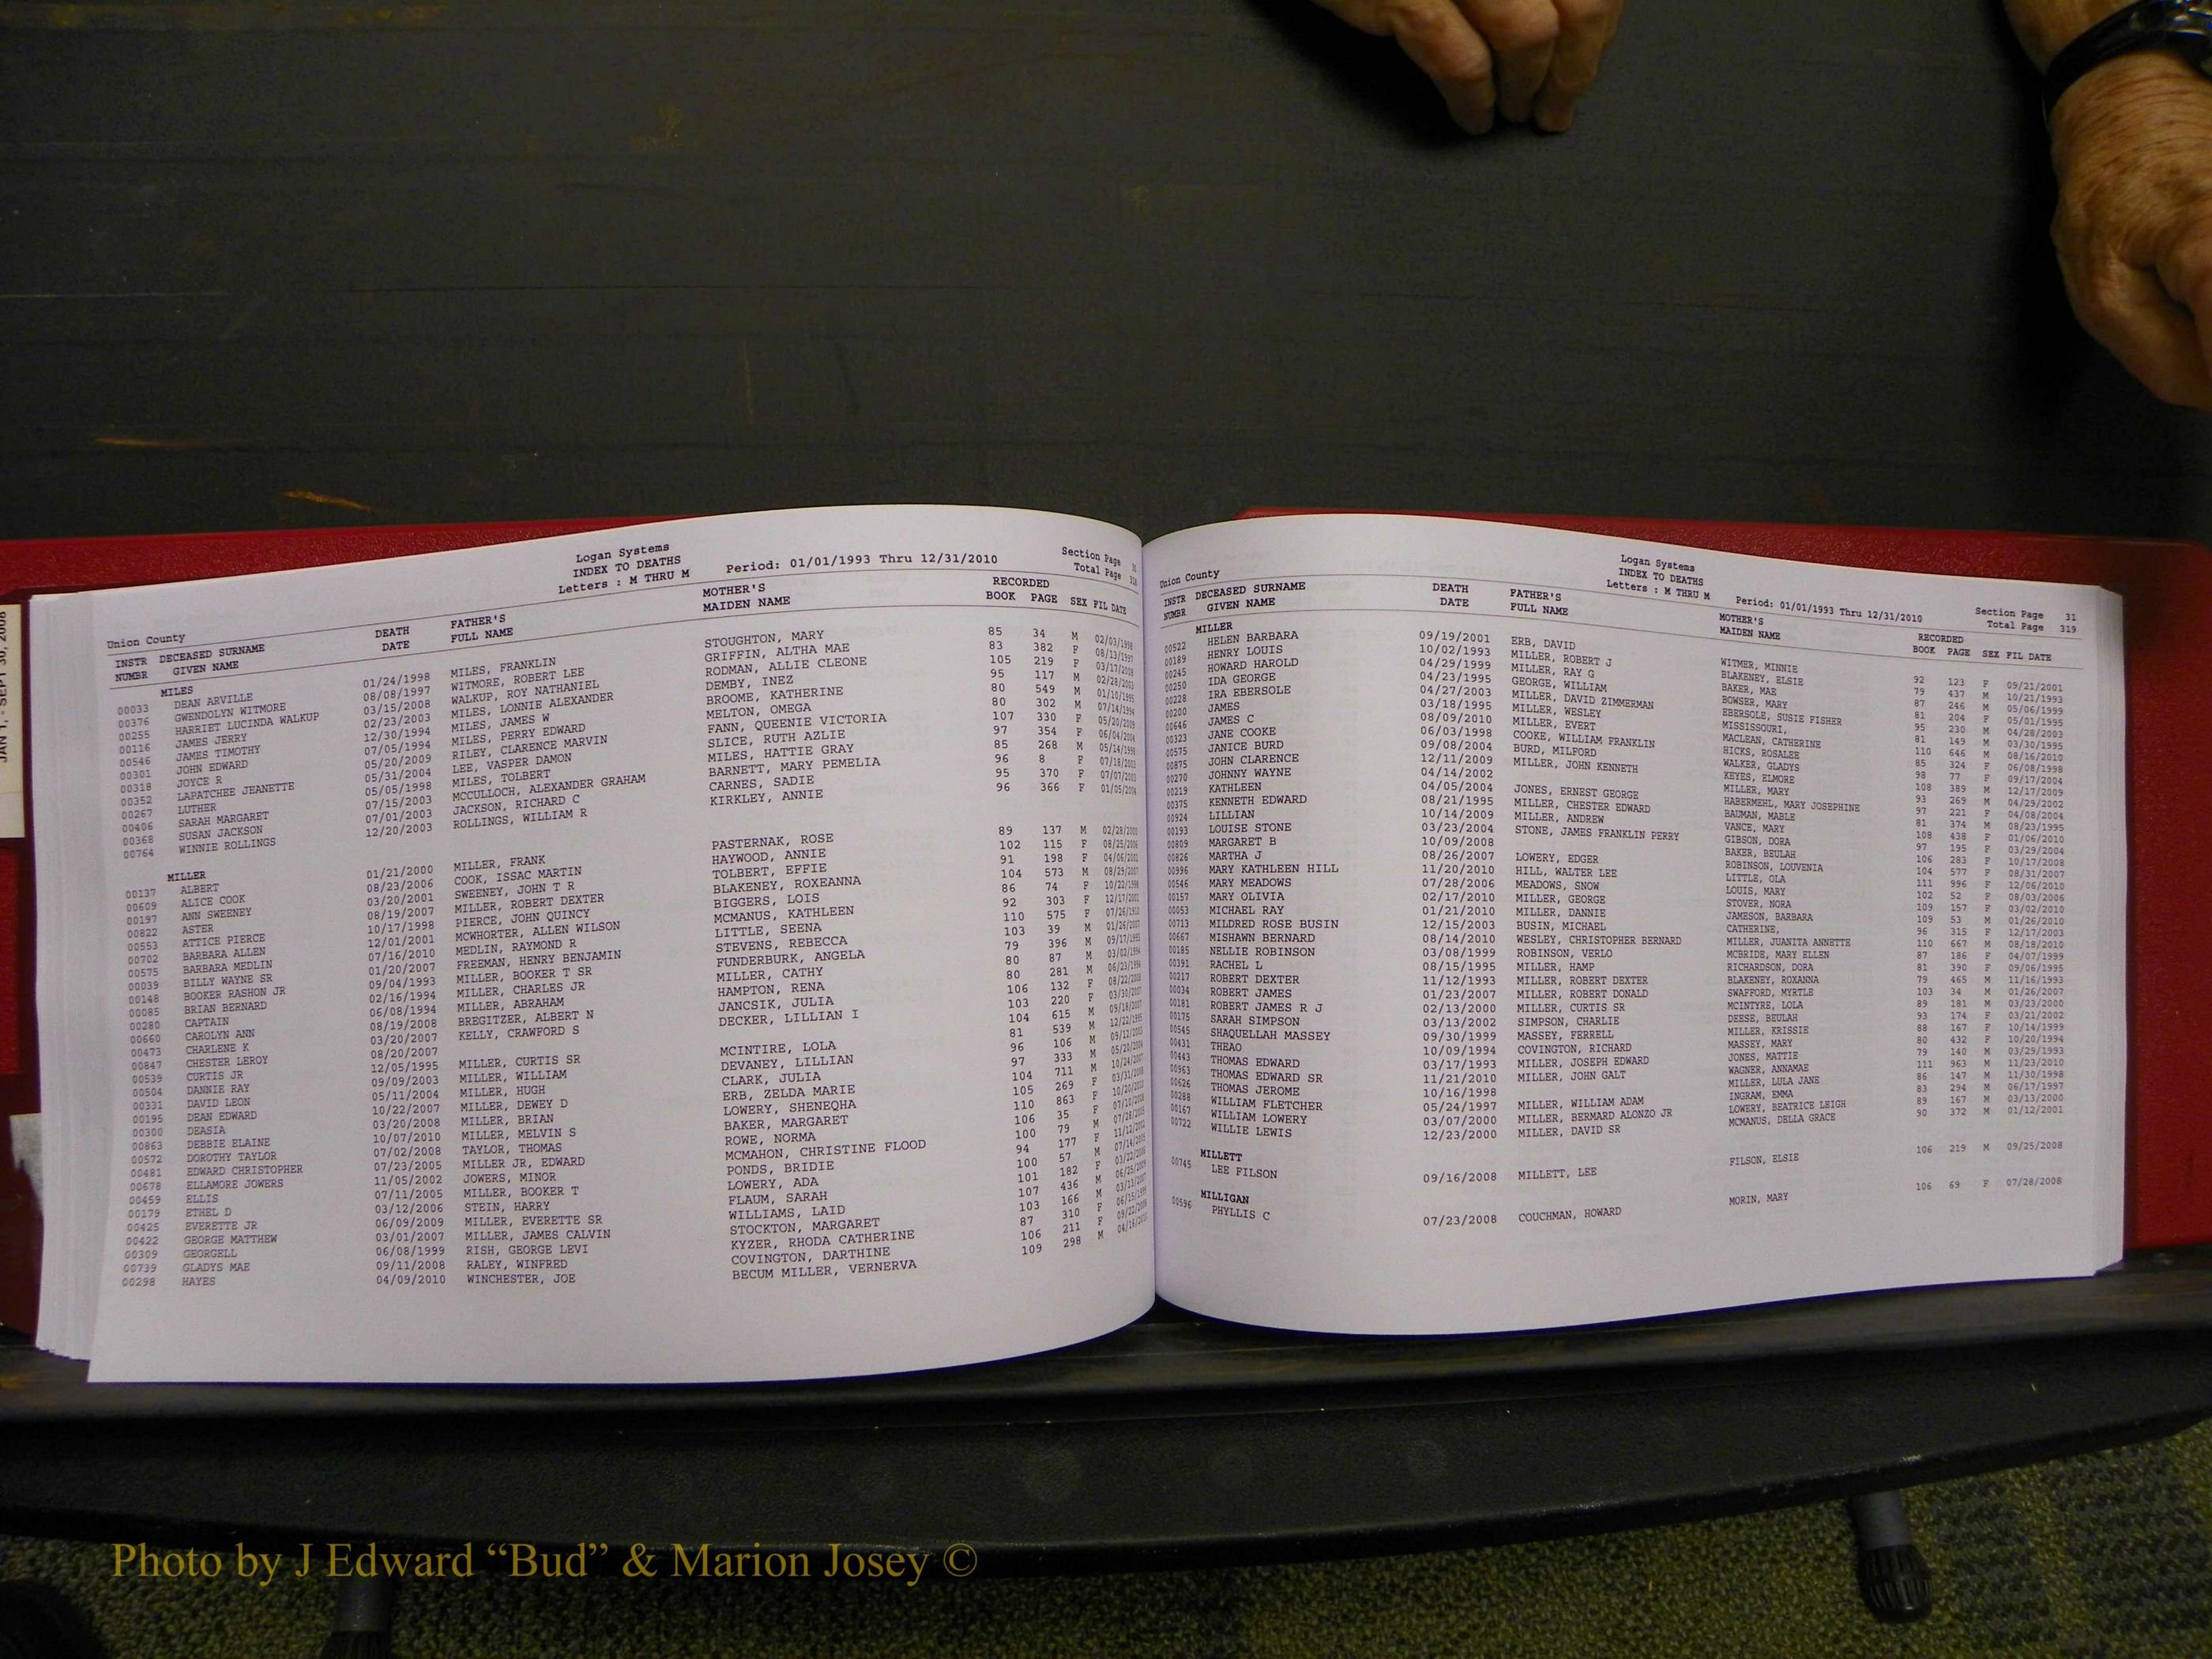 JAN 1, - SEPT 30, 2008
Logan Systems
INDEX TO DEATHS
Letters : M THRU M
Period: 01/01/1993 Thru 12/31/2010
Section Page
Total Page 318
Union County
INSTR NUMBR DECEASED SURNAME GIVEN NAME DEATH DATE FATHER'S FULL NAME MOTHER'S MAIDEN NAME RECORDED BOOK PAGE SEX FIL DATE
MILES
00033 DEAN ARVILLE 01/24/1998 MILES, FRANKLIN STOUGHTON, MARY 85 34 M 02/03/1998
00376 GWENDOLYN WITMORE 08/08/1997 WITMORE, ROBERT LEE GRIFFIN, ALTHA MAE 83 382 F 08/13/1997
00255 HARRIET LUCINDA WALKUP 03/15/2008 WALKUP, ROY NATHANIEL RODMAN, ALLIE CLEONE 105 219 F 03/17/2008
00116 JAMES JERRY 02/23/2003 MILES, LONNIE ALEXANDER DEMBY, INEZ 95 117 M 02/28/2003
00546 JAMES TIMOTHY 12/30/1994 MILES, JAMES W BROOME, KATHERINE 80 549 M 01/10/1995
00301 JOHN EDWARD 07/05/1994 MILES, PERRY EDWARD MELTON, OMEGA 80 302 M 07/14/1994
00318 JOYCE R 05/20/2009 RILEY, CLARENCE MARVIN FANN, QUEENIE VICTORIA 107 330 F 05/20/2009
00352 LAPATCHEE JEANETTE 05/31/2004 LEE, VASPER DAMON SLICE, RUTH AZLIE 97 354 F 06/04/2004
00267 LUTHER 05/05/1998 MILES, TOLBERT MILES, HATTIE GRAY 85 268 M 05/14/1998
00406 SARAH MARGARET 07/15/2003 MCCULLOCH, ALEXANDER GRAHAM BARNETT, MARY PEMELIA 96 8 F 07/18/2003
00368 SUSAN JACKSON 07/01/2003 JACKSON, RICHARD C CARNES, SADIE 95 370 F 07/07/2003
00764 WINNIE ROLLINGS 12/20/2003 ROLLINGS, WILLIAM R KIRKLEY, ANNIE 96 366 F 01/05/2004
MILLER
00137 ALBERT 01/21/2000 MILLER, FRANK PASTERNAK, ROSE 89 137 M 02/28/2000
00609 ALICE COOK 08/23/2006 COOK, ISSAC MARTIN HAYWOOD, ANNIE 102 115 F 08/25/2006
00197 ANN SWEENEY 03/20/2001 SWEENEY, JOHN T R TOLBERT, EFFIE 91 198 F 04/06/2001
00822 ASTER 08/19/2007 MILLER, ROBERT DEXTER BLAKENEY, ROXEANNA 104 573 M 08/29/2007
00553 ATTICE PIERCE 10/17/1998 PIERCE, JOHN QUINCY BIGGERS, LOIS 86 74 F 10/22/1998
00702 BARBARA ALLEN 12/01/2001 MCWHORTER, ALLEN WILSON MCMANUS, KATHLEEN 92 303 F 12/17/2001
00575 BARBARA MEDLIN 07/16/2010 MEDLIN, RAYMOND R LITTLE, SEENA 110 575 F 07/26/2010
00039 BILLY WAYNE SR 01/20/2007 FREEMAN, HENRY BENJAMIN STEVENS, REBECCA 103 39 M 01/26/2007
00148 BOOKER RASHON JR 09/04/1993 MILLER, BOOKER T SR FUNDERBURK, ANGELA 79 396 M 09/17/1993
00085 BRIAN BERNARD 02/16/1994 MILLER, CHARLES JR MILLER, CATHY 80 87 M 03/02/1994
00280 CAPTAIN 06/08/1994 MILLER, ABRAHAM HAMPTON, RENA 80 281 M 06/23/1994
00660 CAROLYN ANN 08/19/2008 BREGITZER, ALBERT N JANCSIK, JULIA 106 132 F 08/22/2008
00473 CHARLENE K 03/20/2007 KELLY, CRAWFORD S DECKER, LILLIAN I 103 220 F 03/30/2007
00847 CHESTER LEROY 08/20/2007 104 615 M 09/18/2007
00539 CURTIS JR 12/05/1995 MILLER, CURTIS SR MCINTIRE, LOLA 81 539 M 12/22/1995
00504 DANNIE RAY 09/09/2003 MILLER, WILLIAM DEVANEY, LILLIAN 96 106 M 09/12/2003
00331 DAVID LEON 05/11/2004 MILLER, HUGH CLARK, JULIA 97 333 M 05/20/2004
00195 DEAN EDWARD 10/22/2007 MILLER, DEWEY D ERB, ZELDA MARIE 104 711 M 10/24/2007
00300 DEASIA 03/20/2008 MILLER, BRIAN LOWERY, SHENEQHA 105 269 F 03/31/2008
00863 DEBBIE ELAINE 10/07/2010 MILLER, MELVIN S BAKER, MARGARET 110 863 F 10/20/2010
00572 DOROTHY TAYLOR 07/02/2008 TAYLOR, THOMAS ROWE, NORMA 106 35 F 07/10/2008
00481 EDWARD CHRISTOPHER 07/23/2005 MILLER JR, EDWARD MCMAHON, CHRISTINE FLOOD 100 79 M 07/28/2005
00678 ELLAMORE JOWERS 11/05/2002 JOWERS, MINOR PONDS, BRIDIE 94 177 F 11/12/2002
00459 ELLIS 07/11/2005 MILLER, BOOKER T LOWERY, ADA 100 57 M 07/14/2005
00179 ETHEL D 03/12/2006 STEIN, HARRY FLAUM, SARAH 101 182 F 03/22/2006
00425 EVERETTE JR 06/09/2009 MILLER, EVERETTE SR WILLIAMS, LAID 107 436 M 06/25/2009
00422 GEORGE MATTHEW 03/01/2007 MILLER, JAMES CALVIN STOCKTON, MARGARET 103 166 M 03/13/2007
00309 GEORGELL 06/08/1999 RISH, GEORGE LEVI KYZER, RHODA CATHERINE 87 310 F 06/15/1999
00739 GLADYS MAE 09/11/2008 RALEY, WINFRED COVINGTON, DARTHINE 106 211 F 09/22/2008
00298 HAYES 04/09/2010 WINCHESTER, JOE BECUM MILLER, VERNERVA 109 298 M 04/16/2010
Logan Systems
INDEX TO DEATHS
Letters : M THRU M
Period: 01/01/1993 Thru 12/31/2010
Section Page 31
Total Page 319
Union County
INSTR NUMBR DECEASED SURNAME GIVEN NAME DEATH DATE FATHER'S FULL NAME MOTHER'S MAIDEN NAME RECORDED BOOK PAGE SEX FIL DATE
MILLER
00522 HELEN BARBARA 09/19/2001 ERB, DAVID WITMER, MINNIE 92 123 F 09/21/2001
00189 HENRY LOUIS 10/02/1993 MILLER, ROBERT J BLAKENEY, ELSIE 79 437 M 10/21/1993
00245 HOWARD HAROLD 04/29/1999 MILLER, RAY G BAKER, MAE 87 246 M 05/06/1999
00250 IDA GEORGE 04/23/1995 GEORGE, WILLIAM BOWSER, MARY 81 204 F 05/01/1995
00228 IRA EBERSOLE 04/27/2003 MILLER, DAVID ZIMMERMAN EBERSOLE, SUSIE FISHER 95 230 M 04/28/2003
00200 JAMES 03/18/1995 MILLER, WESLEY MISSISSOURI, 81 149 M 03/30/1995
00646 JAMES C 08/09/2010 MILLER, EVERT MACLEAN, CATHERINE 110 646 M 08/16/2010
00323 JANE COOKE 06/03/1998 COOKE, WILLIAM FRANKLIN HICKS, ROSALEE 85 324 F 06/08/1998
00575 JANICE BURD 09/08/2004 BURD, MILFORD WALKER, GLADYS 98 77 F 09/17/2004
00875 JOHN CLARENCE 12/11/2009 MILLER, JOHN KENNETH KEYES, ELMORE 108 389 M 12/17/2009
00270 JOHNNY WAYNE 04/14/2002 MILLER, MARY 93 269 M 04/29/2002
00219 KATHLEEN 04/05/2004 JONES, ERNEST GEORGE HABERMEHL, MARY JOSEPHINE 97 221 F 04/08/2004
00375 KENNETH EDWARD 08/21/1995 MILLER, CHESTER EDWARD BAUMAN, MABLE 81 374 M 08/23/1995
00924 LILLIAN 10/14/2009 MILLER, ANDREW VANCE, MARY 108 438 F 01/06/2010
00193 LOUISE STONE 03/23/2004 STONE, JAMES FRANKLIN PERRY GIBSON, DORA 97 195 F 03/29/2004
00809 MARGARET B 10/09/2008 BAKER, BEULAH 106 283 F 10/17/2008
00826 MARTHA J 08/26/2007 LOWERY, EDGER ROBINSON, LOUVENIA 104 577 F 08/31/2007
00996 MARY KATHLEEN HILL 11/20/2010 HILL, WALTER LEE LITTLE, OLA 111 996 F 12/06/2010
00546 MARY MEADOWS 07/28/2006 MEADOWS, SNOW LOUIS, MARY 102 52 F 08/03/2006
00157 MARY OLIVIA 02/17/2010 MILLER, GEORGE STOVER, NORA 109 157 F 03/02/2010
00053 MICHAEL RAY 01/21/2010 MILLER, DANNIE JAMESON, BARBARA 109 53 M 01/26/2010
00713 MILDRED ROSE BUSIN 12/15/2003 BUSIN, MICHAEL CATHERINE, 96 315 F 12/17/2003
00667 MISHAWN BERNARD 08/14/2010 WESLEY, CHRISTOPHER BERNARD MILLER, JUANITA ANNETTE 110 667 M 08/18/2010
00185 NELLIE ROBINSON 03/08/1999 ROBINSON, VERLO MCBRIDE, MARY ELLEN 87 186 F 04/07/1999
00391 RACHEL L 08/15/1995 MILLER, HAMP RICHARDSON, DORA 81 390 F 09/06/1995
00217 ROBERT DEXTER 11/12/1993 MILLER, ROBERT DEXTER BLAKENEY, ROXANNA 79 465 M 11/16/1993
00034 ROBERT JAMES 01/23/2007 MILLER, ROBERT DONALD SWAFFORD, MYRTLE 103 34 M 01/26/2007
00181 ROBERT JAMES R J 02/13/2000 MILLER, CURTIS SR MCINTYRE, LOLA 89 181 M 03/23/2000
00175 SARAH SIMPSON 03/13/2002 SIMPSON, CHARLIE DEESE, BEULAH 93 174 F 03/21/2002
00545 SHAQUELLAH MASSEY 09/30/1999 MASSEY, FERRELL MILLER, KRISSIE 88 167 F 10/14/1999
00431 THEAO 10/09/1994 COVINGTON, RICHARD MASSEY, MARY 80 432 F 10/20/1994
00443 THOMAS EDWARD 03/17/1993 MILLER, JOSEPH EDWARD JONES, MATTIE 79 140 M 03/29/1993
00963 THOMAS EDWARD SR 11/21/2010 MILLER, JOHN GALT WAGNER, ANNAMAE 111 963 M 11/23/2010
00626 THOMAS JEROME 10/16/1998 MILLER, LULA JANE 86 147 M 11/30/1998
00288 WILLIAM FLETCHER 05/24/1997 MILLER, WILLIAM ADAM INGRAM, EMMA 83 294 M 06/17/1997
00167 WILLIAM LOWERY 03/07/2000 MILLER, BERNARD ALONZO JR LOWERY, BEATRICE LEIGH 89 167 M 03/13/2000
00722 WILLIE LEWIS 12/23/2000 MILLER, DAVID SR MCMANUS, DELLA GRACE 90 372 M 01/12/2001
MILLETT
00745 LEE FILSON 09/16/2008 MILLETT, LEE FILSON, ELSIE 106 219 M 09/25/2008
MILLIGAN
00596 PHYLLIS C 07/23/2008 COUCHMAN, HOWARD MORIN, MARY 106 69 F 07/28/2008
Photo by J Edward “Bud” & Marion Josey ©